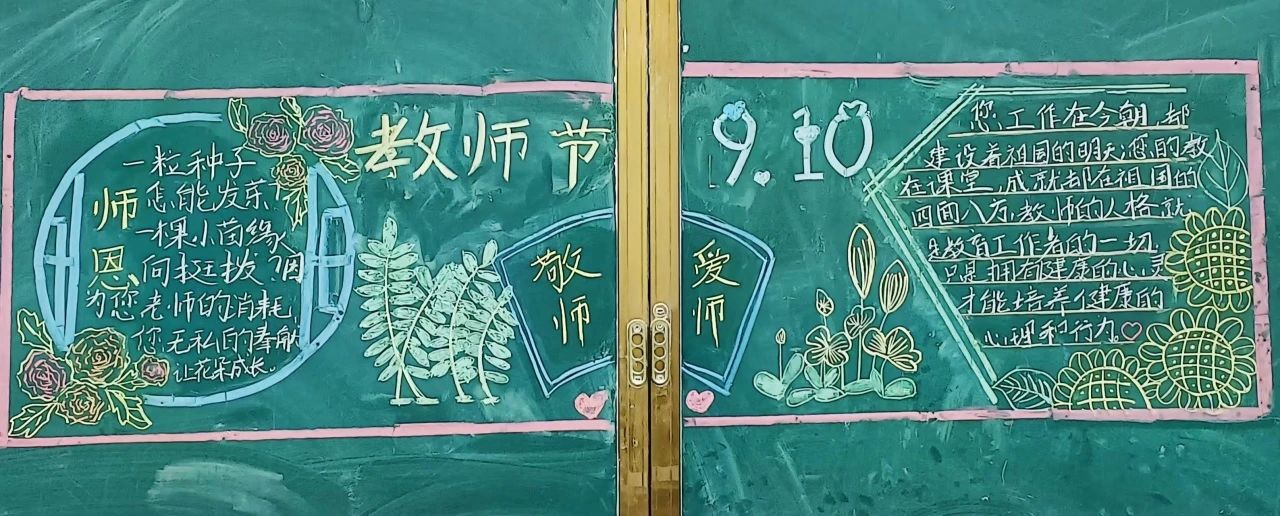 教师节
9.10
师恩
一粒种子
怎能发芽?
一棵小苗缘
何挺拔?因
为您老师的消耗,
你无私的奉献
让花朵成长。
敬师
爱师
您工作在今朝,却
建设着祖国的明天;您的教
在课堂,成就却在祖国的
四面八方,教师的人格就
是教育工作者的一切
只是拥有健康的心灵
才能培养健康的
心理和行为。